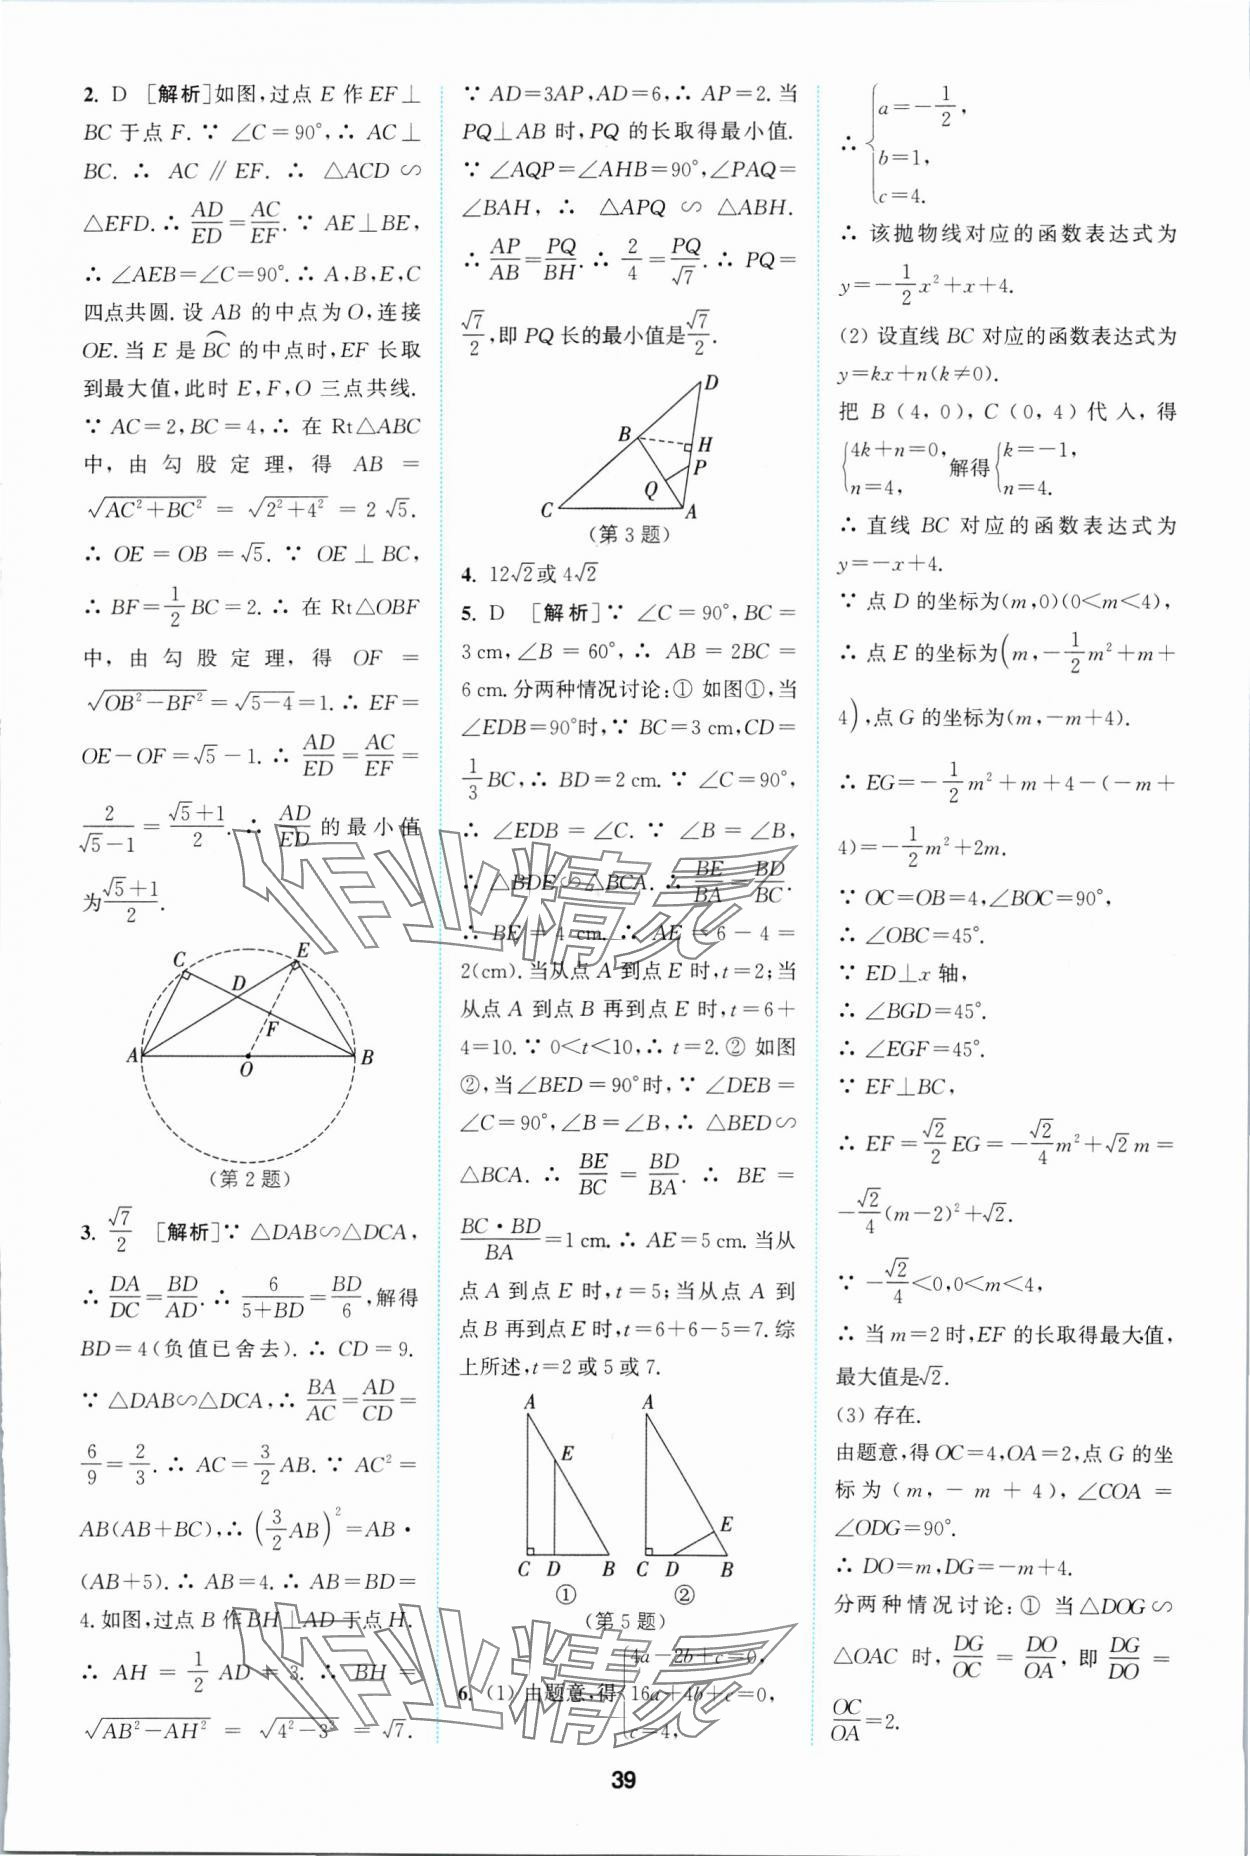 2. D [解析]如图,过点 E 作 EF⊥
BC 于点 F. ∵ ∠C=90°,∴ AC⊥
BC. ∴ AC∥EF. ∴ △ACD∽
△EFD. ∴ AD/ED=AC/EF. ∵ AE⊥BE,
∴ ∠AEB=∠C=90°. ∴ A,B,E,C
四点共圆. 设 AB 的中点为 O,连接
OE. 当 E 是 BC⌒ 的中点时,EF 长取
到最大值,此时 E,F,O 三点共线.
∵ AC=2,BC=4,∴ 在 Rt△ABC
中,由勾股定理,得 AB=
√(AC²+BC²) = √(2²+4²) = 2√5.
∴ OE=OB=√5. ∵ OE⊥BC,
∴ BF=1/2 BC=2. ∴ 在 Rt△OBF
中,由勾股定理,得 OF=
√(OB²-BF²)=√(5-4)=1. ∴ EF=
OE-OF=√5-1. ∴ AD/ED=AC/EF=
2/(√5-1)=(√5+1)/2. ∴ AD/ED 的最小值
为(√5+1)/2.
C E D F A O B
(第2题)
3. √7/2 [解析]∵ △DAB∽△DCA,
∴ DA/DC=BD/AD. ∴ 6/(5+BD)=BD/6,解得
BD=4(负值已舍去). ∴ CD=9.
∵ △DAB∽△DCA,∴ BA/AC=AD/CD=
6/9=2/3. ∴ AC=3/2 AB. ∵ AC²=
AB(AB+BC),∴ (3/2 AB)²=AB·
(AB+5). ∴ AB=4. ∴ AB=BD=
4. 如图,过点 B 作 BH⊥AD 于点 H.
∴ AH=1/2 AD=3. ∴ BH=
√(AB²-AH²) = √(4²-3²) = √7.
∵ AD=3AP,AD=6,∴ AP=2. 当
PQ⊥AB 时,PQ 的长取得最小值.
∵ ∠AQP=∠AHB=90°,∠PAQ=
∠BAH,∴ △APQ∽△ABH.
∴ AP/AB=PQ/BH. ∴ 2/4=PQ/√7. ∴ PQ=
√7/2,即 PQ 长的最小值是√7/2.
D B H P Q C A
(第3题)
4. 12√2或4√2
5. D [解析]∵ ∠C=90°,BC=
3 cm,∠B=60°,∴ AB=2BC=
6 cm. 分两种情况讨论:① 如图①,当
∠EDB=90°时,∵ BC=3 cm,CD=
1/3 BC,∴ BD=2 cm. ∵ ∠C=90°,
∴ ∠EDB=∠C. ∵ ∠B=∠B,
∴ △BDE∽△BCA. ∴ BE/BA=BD/BC.
∴ BE=4 cm. ∴ AE=6-4=
2(cm). 当从点 A 到点 E 时,t=2;当
从点 A 到点 B 再到点 E 时,t=6+
4=10. ∵ 0<t<10,∴ t=2. ② 如图
②,当∠BED=90°时,∵ ∠DEB=
∠C=90°,∠B=∠B,∴ △BED∽
△BCA. ∴ BE/BC=BD/BA. ∴ BE=
BC·BD/BA=1 cm. ∴ AE=5 cm. 当从
点 A 到点 E 时,t=5;当从点 A 到
点 B 再到点 E 时,t=6+6-5=7. 综
上所述,t=2 或 5 或 7.
A E C D B ①
A E C D B ②
(第5题)
6. (1) 由题意,得{4a-2b+c=0, 16a+4b+c=0, c=4,
∴ {a=-1/2, b=1, c=4.
∴ 该抛物线对应的函数表达式为
y=-1/2 x²+x+4.
(2) 设直线 BC 对应的函数表达式为
y=kx+n(k≠0).
把 B(4,0),C(0,4)代入,得
{4k+n=0, n=4, 解得{k=-1, n=4.
∴ 直线 BC 对应的函数表达式为
y=-x+4.
∵ 点 D 的坐标为(m,0)(0<m<4),
∴ 点 E 的坐标为(m,-1/2 m²+m+
4),点 G 的坐标为(m,-m+4).
∴ EG=-1/2 m²+m+4-(-m+
4)=-1/2 m²+2m.
∵ OC=OB=4,∠BOC=90°,
∴ ∠OBC=45°.
∵ ED⊥x 轴,
∴ ∠BGD=45°.
∴ ∠EGF=45°.
∵ EF⊥BC,
∴ EF=√2/2 EG=-√2/4 m²+√2 m=
-√2/4(m-2)²+√2.
∵ -√2/4<0,0<m<4,
∴ 当 m=2 时,EF 的长取得最大值,
最大值是√2.
(3) 存在.
由题意,得 OC=4,OA=2,点 G 的坐
标为(m,-m+4),∠COA=
∠ODG=90°.
∴ DO=m,DG=-m+4.
分两种情况讨论:① 当△DOG∽
△OAC 时,DG/OC=DO/OA,即DG/DO=
OC/OA=2.
39
作业精灵
作业精灵